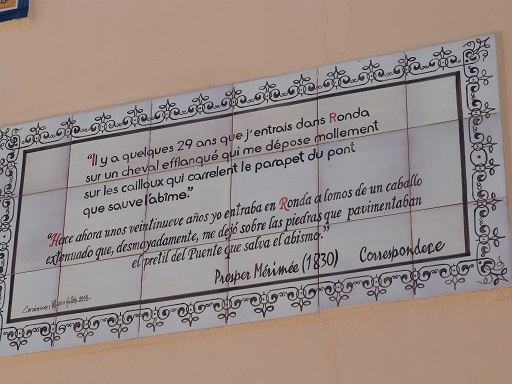 "Il y a quelques 29 ans que j'entrais dans Ronda
sur un cheval efflanqué qui me dépose mollement
sur les cailloux qui carrelent le parapet du pont
que sauve l'abîme."
"Hace ahora unos veintinueve años yo entraba en Ronda a lomos de un caballo
extenuado que, desmayadamente, me dejó sobre las piedras que pavimentaban
el pretil del Puente que salva el abismo."
Prosper Mérimée (1830) Correspondace